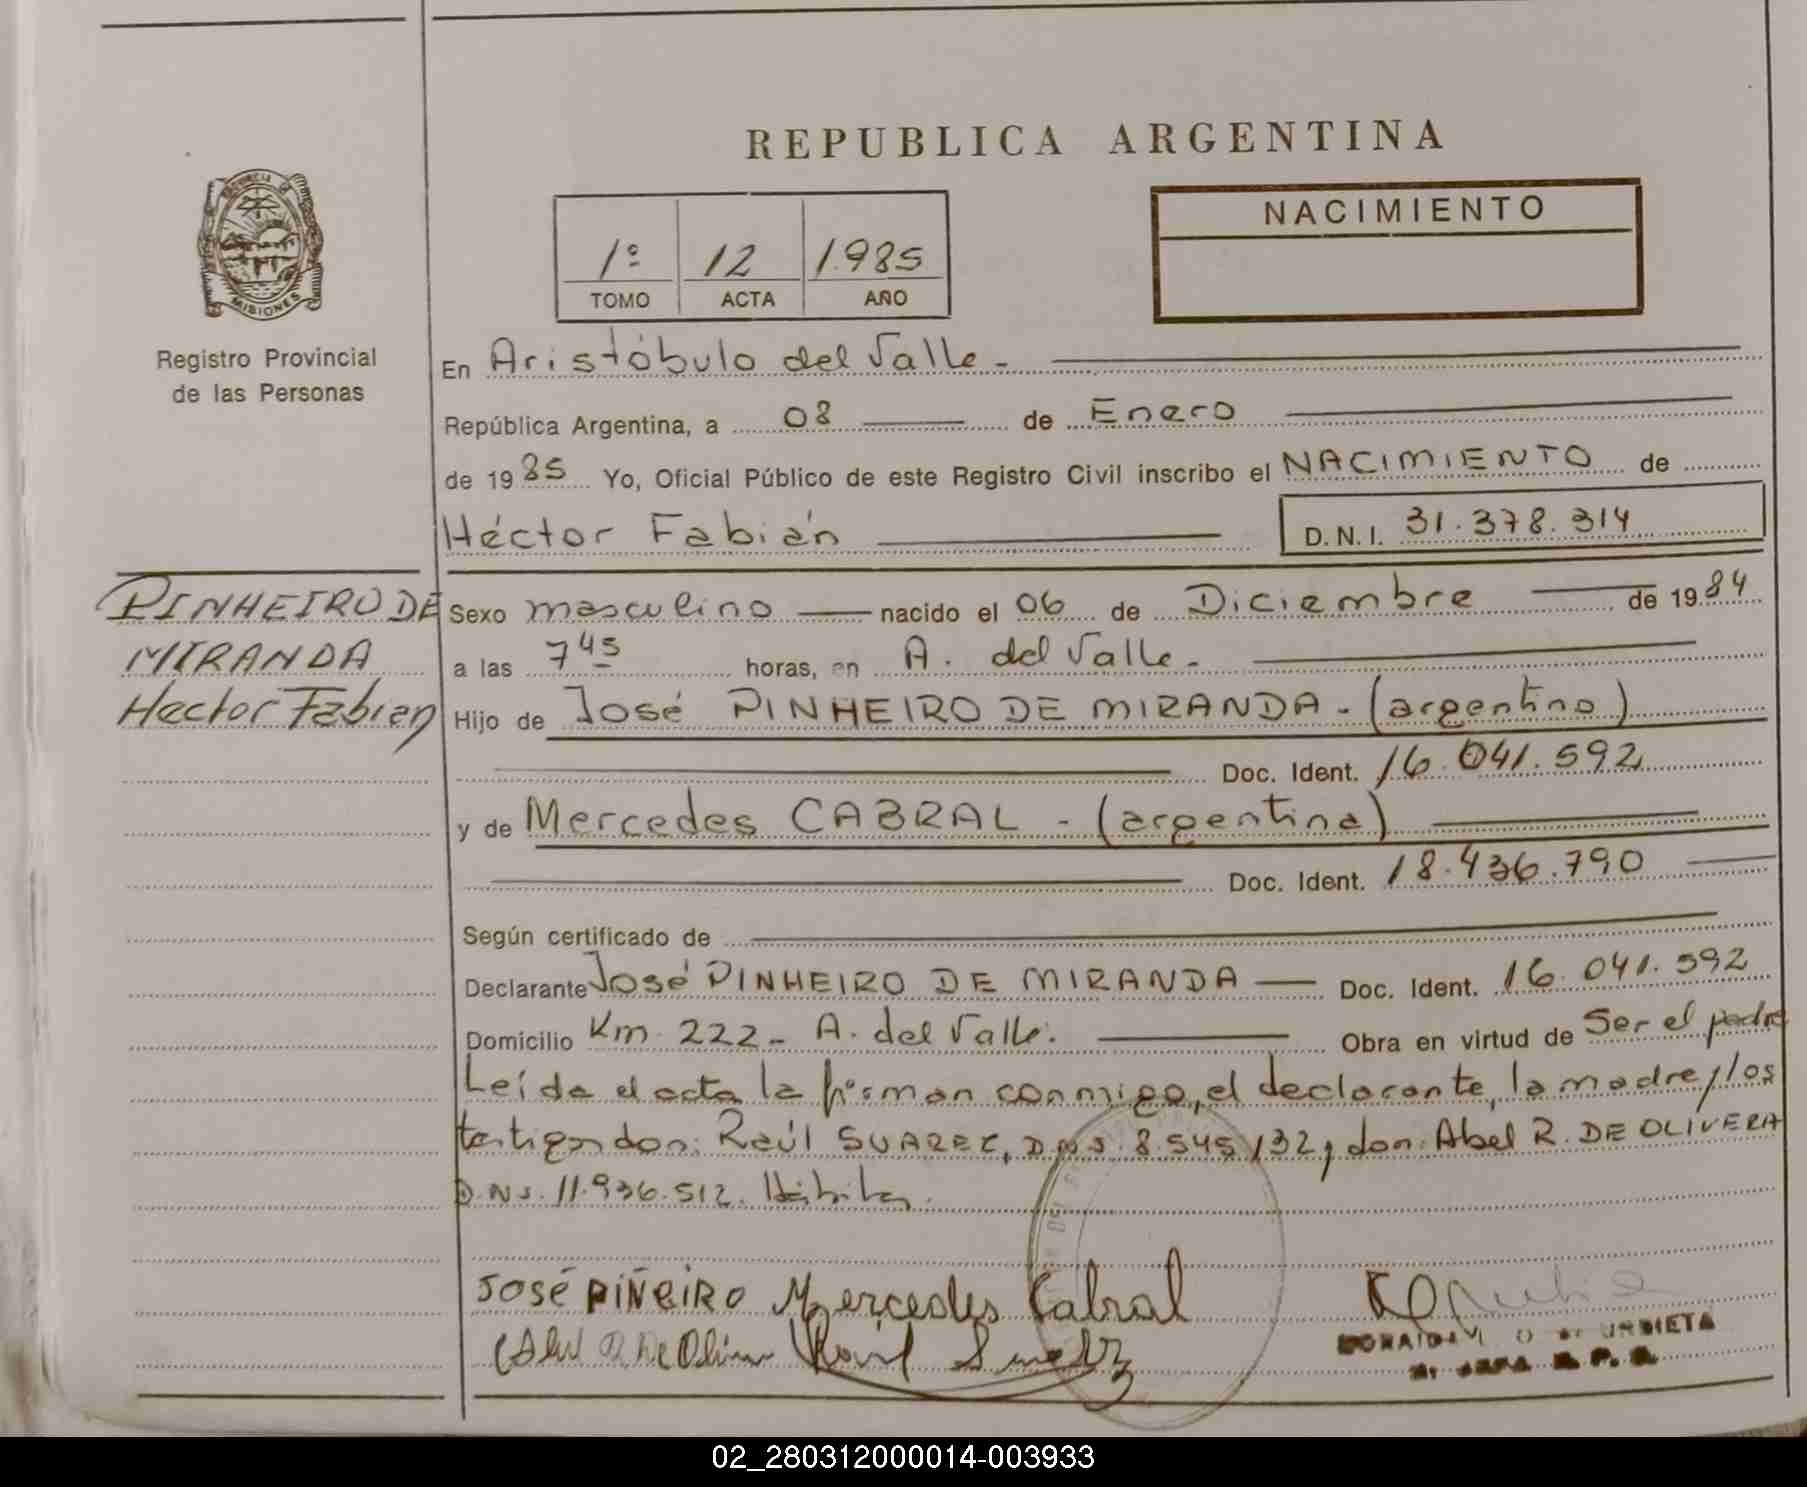 REPUBLICA ARGENTINA
NACIMIENTO
1º 12 1.985
TOMO ACTA AÑO
PROVINCIA DE
MISIONES
Registro Provincial
de las Personas
En Aristóbulo del Valle -
República Argentina, a 08 de Enero
de 1985 Yo, Oficial Público de este Registro Civil inscribo el NACIMIENTO de
Héctor Fabián D.N.I. 31.378.314
PINHEIRO DE
MIRANDA
Héctor Fabián
Sexo masculino nacido el 06 de Diciembre de 1984
a las 7 45 horas, en A. del Valle -
Hijo de José PINHEIRO DE MIRANDA - (argentino)
Doc. Ident. 16.041.592
y de Mercedes CABRAL - (argentina)
Doc. Ident. 18.436.790
Según certificado de
Declarante José PINHEIRO DE MIRANDA Doc. Ident. 16.041.592
Domicilio Km. 222 - A. del Valle. Obra en virtud de Ser el padre
Leída el acta la firman conmigo, el declarante, la madre y los
testigos don: Raúl SUAREZ, D.N.I. 8.545.132 y don: Abel R. DE OLIVERA
D.N.I. 11.936.512. Hábiles.
JOSÉ PIÑEIRO Mercedes Cabral
Abel R De Olivera Raúl Suarez
URDIETA
02_280312000014-003933